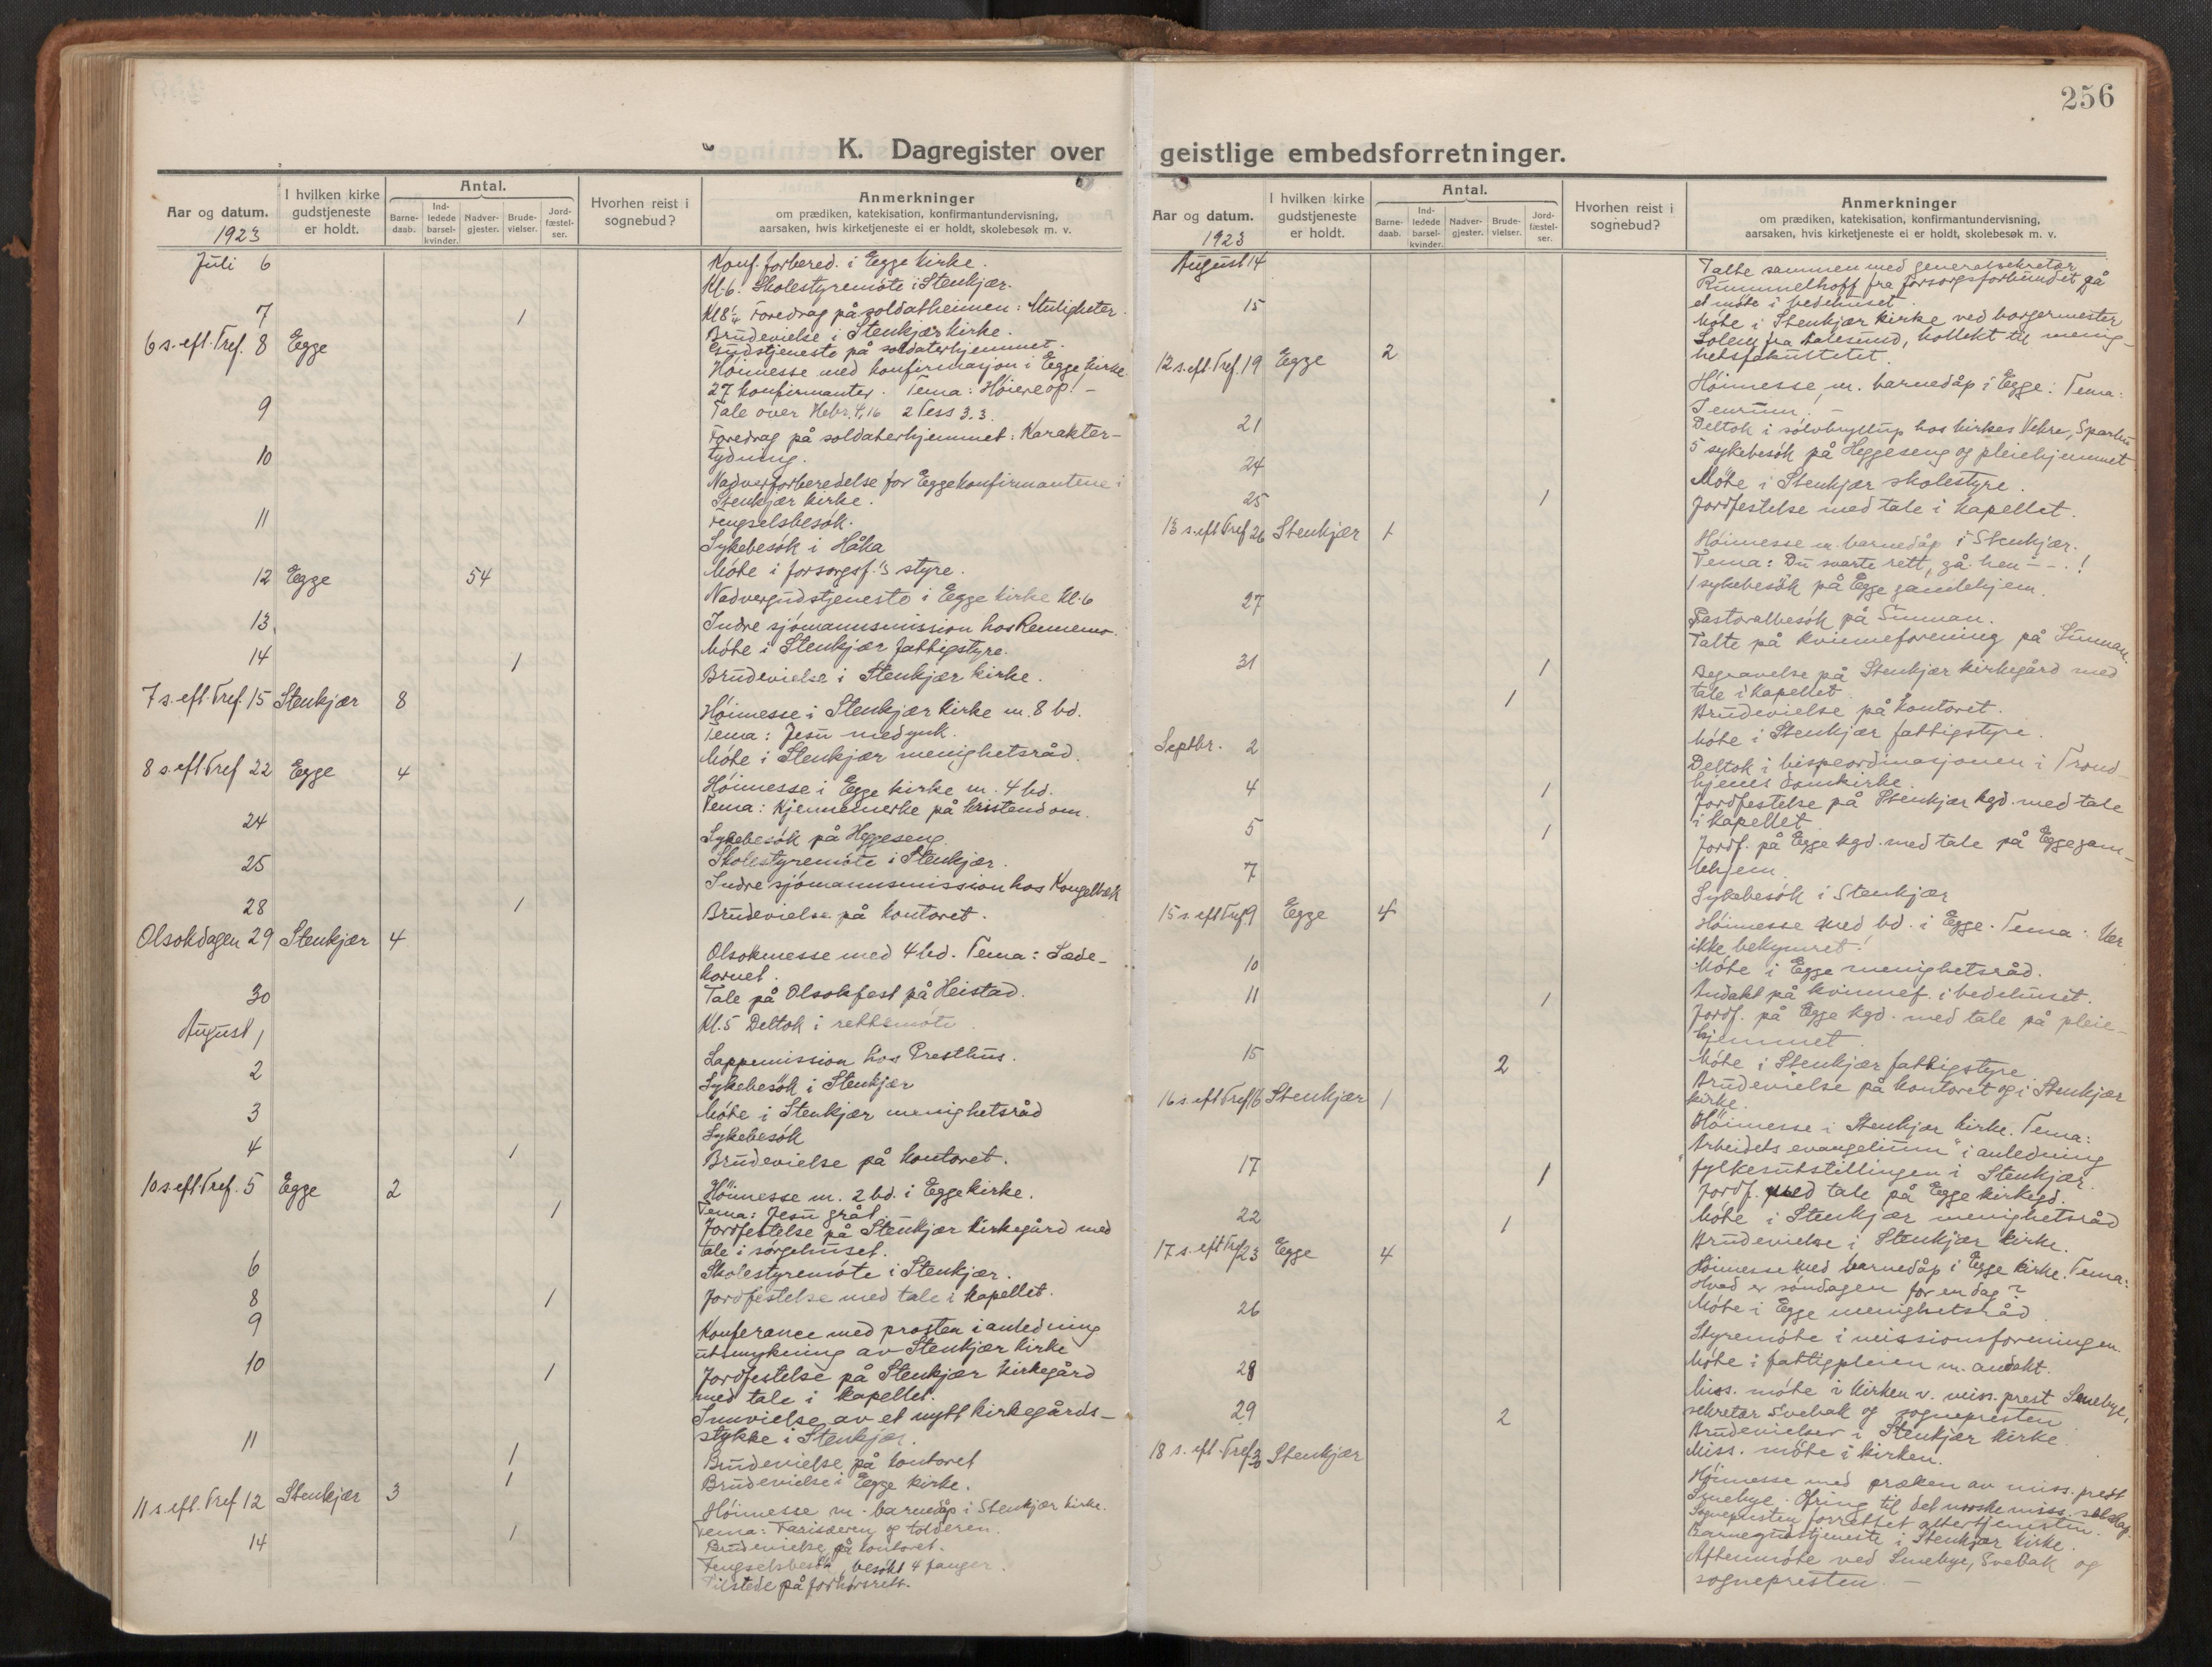 256
K. Dagregister over geistlige embedsforretninger.
Aar og datum.
1923
I hvilken kirke gudstjeneste er holdt.
Antal.
Barne-daab.
Ind-ledede barsel-kvinder.
Nadver-gjester.
Brude-vielser.
Jord-fæstel-ser.
Hvorhen reist i sognebud?
Anmerkninger
om prædiken, katekisation, konfirmantundervisning,
aarsaken, hvis kirketjeneste ei er holdt, skolebesøk m. v.
Juli 6
Konf. forbered. i Egge kirke.
Kl. 6. Skolestyremöte i Stenkjær.
Kl 8¼ Foredrag på soldatheimen: Muligheter.
7 1
Brudevielse i Stenkjær kirke.
Gudstjeneste på soldaterhjemmet.
6 s. eft. Tref. 8 Egge
Höimesse med konfirmasjon i Egge kirke.
27 konfirmanter. Tema: Höiere op! –
Tale over Hebr. 4, 16 2 Tess 3. 3.
9
Foredrag på soldaterhjemmet: Karakter-
tydning.
10
Nadverforberedelse for Eggekonfirmantene i
Stenkjær kirke.
Fengselsbesök.
11
Sykebesök i Håka
Möte i forsorgsf.'s styre.
12 Egge 54
Nadvergudstjeneste i Egge kirke Kl. 6
13.
Indre sjömannsmission hos Rennemo.
Möte i Stenkjær fattigstyre.
14 1
Brudevielse i Stenkjær kirke.
7 s. eft. Tref. 15 Stenkjær 8
Höimesse i Stenkjær kirke m. 8 bd.
Tema: Jesu medynk.
Möte i Stenkjær menighetsråd.
8 s. eft Tref 22 Egge 4
Höimesse i Egge kirke m. 4 bd.
Tema: Kjennemerke på kristendom.
24
Sykebesök på Heggeseng.
Skolestyremöte i Stenkjær.
25
Indre sjömannsmission hos Kongelbæk
28 1
Brudevielse på kontoret.
Olsokdagen 29 Stenkjær 4
Olsokmesse med 4 bd. Tema: Sæde-
kornet.
Tale på Olsokfest på Heistad.
30
Kl. 5 Deltok i rettsmöte
August 1
Lappemission hos Presthus.
2
Sykebesök i Stenkjær
3
Möte i Stenkjær menighetsråd
Sykebesök
4 1
Brudevielse på kontoret.
10 s. eft Tref. 5 Egge 2
Höimesse m. 2 bd. i Egge kirke.
Tema: Jesu gråt.
1
Jordfestelse på Stenkjær kirkegård med
tale i sörgehuset.
6
Skolestyremöte i Stenkjær.
8 1
Jordfestelse med tale i kapellet.
9
Konferance med prosten i anledning
utsmykning av Stenkjær kirke
10 1
Jordfestelse på Stenkjær kirkegård
med tale i kapellet.
Innvielse av et nytt kirkegårds-
stykke i Stenkjær.
11 1
Brudevielse på kontoret
1
Brudevielse i Egge kirke.
11 s. eft. Tref 12 Stenkjær 3
Höimesse m. barnedåp i Stenkjær kirke.
Tema: Fariseeren og tolderen.
14 1
Brudevielse på kontoret.
Fengselsbesök, besökt 4 fanger.
Tilstede på forhörsrett.
Aar og datum.
1923
I hvilken kirke gudstjeneste er holdt.
Antal.
Barne-daab.
Ind-ledede barsel-kvinder.
Nadver-gjester.
Brude-vielser.
Jord-fæstel-ser.
Hvorhen reist i sognebud?
Anmerkninger
om prædiken, katekisation, konfirmantundervisning,
aarsaken, hvis kirketjeneste ei er holdt, skolebesøk m. v.
August 14
Talte sammen med generalsekretær
Rummelhoff fra forsorgsforbundet på
et möte i bedehuset.
15
Möte i Stenkjær kirke ved borgermester
Solem fra Aalesund, kollekt til menig-
hetsfakultetet.
12 s. eft. Tref. 19 Egge 2
Höimesse m. barnedåp i Egge. Tema:
21
Deltok i sölvbryllup hos kirkes. Vekre, Sparbu
5 sykebesök på Heggeseng og pleiehjemmet
24
Möte i Stenkjær skolestyre.
25 1
Jordfestelse med tale i kapellet.
13 s. eft Tref 26 Stenkjær 1
Höimesse m. barnedåp i Stenkjær.
Tema: Du svarte rett, gå hen – – !
1 sykebesök på Egge gamlehjem.
27
Pastoralbesök på Sunnan.
Talte på kvinneforening på Sunnan.
31 1
Begravelse på Stenkjær kirkegård med
tale i kapellet.
1
Brudevielse på kontoret.
Möte i Stenkjær fattigstyre.
Septbr. 2
Deltok i bispeordinasjonen i Trond-
hjems domkirke
4 1
Jordfestelse på Stenkjær kgd. med tale
i kapellet
5 1
Jordf. på Egge kgd. med tale på Egge gam-
lehjem.
7
Sykebesök i Stenkjær
15 s. eft Tref 9 Egge 4
Höimesse med bd. i Egge. Tema: Vær
ikke bekymret!
Möte i Egge menighetsråd.
10
Andakt på kvinnef. i bedehuset.
11 1
Jordf. på Egge kgd. med tale på pleie-
hjemmet
Möte i Stenkjær fattigstyre.
15 2
Brudevielse på kontoret og i Stenkjær
kirke.
16 s. eft Tref 16 Stenkjær 1
Höimesse i Stenkjær kirke. Tema:
"Arbeidets evangelium" i anledning
fylkesutstillingen i Stenkjær.
17 1
Jordf. med tale på Egge kirkegd.
Möte i Stenkjær menighetsråd
22 1
Brudevielse i Stenkjær kirke.
17. s. eft Tref 23 Egge 4
Höimesse med barnedåp i Egge kirke. Tema:
Hvad er söndagen for en dag?
Möte i Egge menighetsråd.
26
Styremöte i missionsforeningen.
Möte i fattigpleien m. andakt.
28
Miss. möte i kirken v. miss. prest Smebye,
sekretær Svebak og sognepresten
29 2
Brudevielser i Stenkjær kirke
Miss. möte i kirken.
18 s. eft. Tref 30 Stenkjær
Höimesse med præken av miss. prest
Smebye. Ofring til det norske miss. selskap.
Sognepresten forrettet altertjenesten.
Barnegudstjeneste i Stenkjær kirke.
Aftenmöte ved Smebye, Svebak og
sognepresten. –